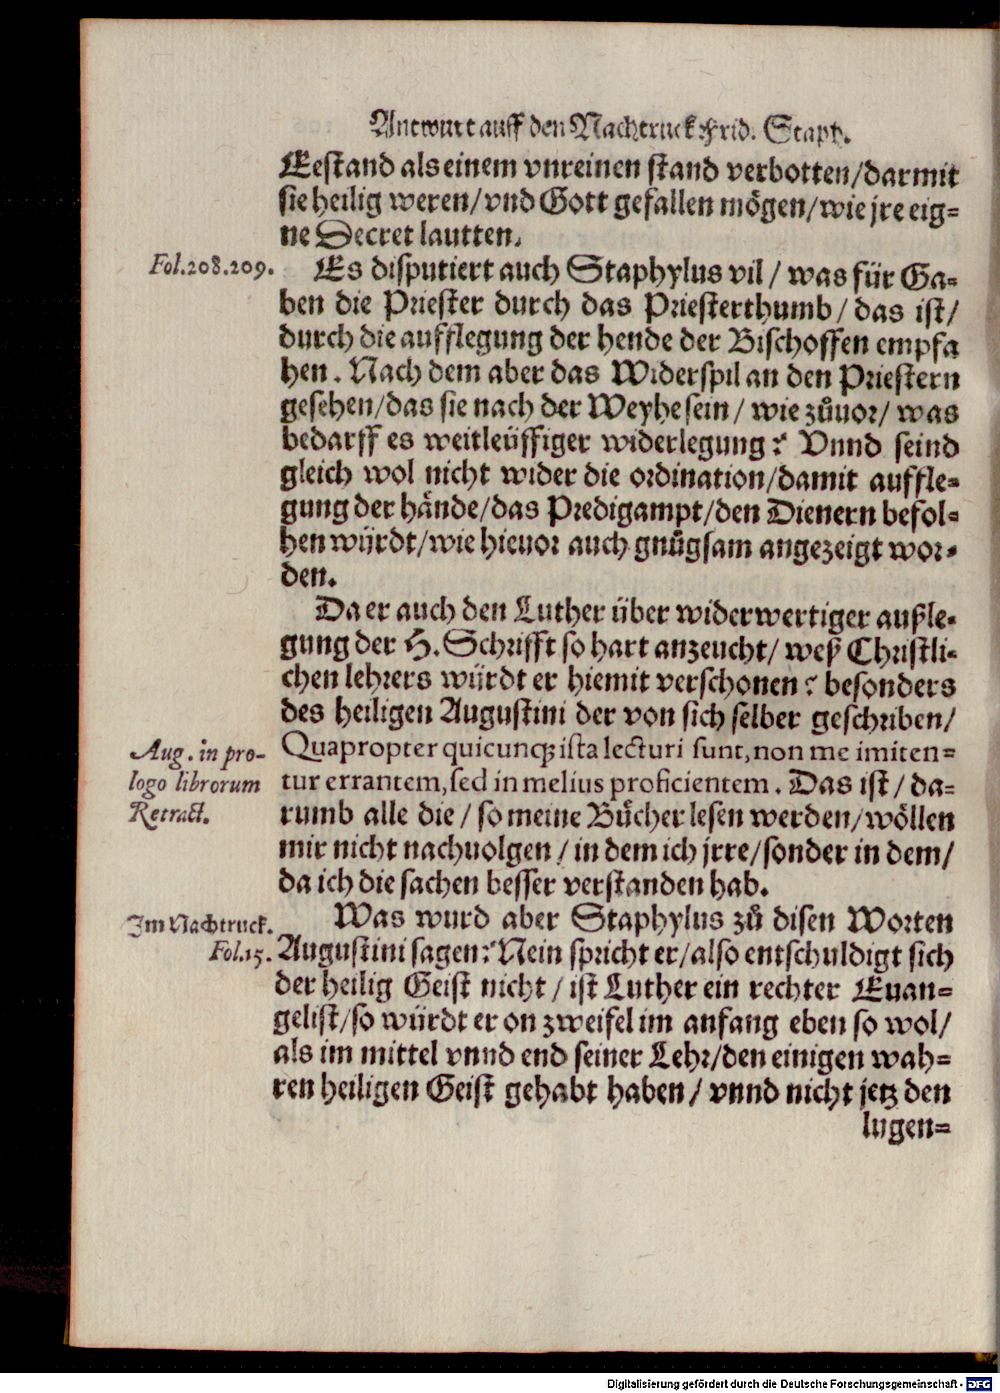 Antwurt auff den Nachtruck Frid. Staph.
Eestand als einem vnreinen stand verbotten/darmit
sie heilig weren/vnd Gott gefallen mögen/wie jre eig=
ne Decret lautten.
Fol.208.209.
Es disputiert auch Staphylus vil / was für Ga=
ben die Priester durch das Priesterthumb/ das ist/
durch die aufflegung der hende der Bischoffen empfa
hen. Nach dem aber das Widerspil an den Priestern
gesehen/das sie nach der Weyhe sein/ wie zůuor/ was
bedarff es weitleüffiger widerlegung? Vnnd seind
gleich wol nicht wider die ordination/damit auffle=
gung der hände/das Predigampt/den Dienern befol=
hen würdt/wie hieuor auch gnůgsam angezeigt wor=
den.
Da er auch den Luther über widerwertiger außle=
gung der H. Schrifft so hart anzeucht/ weß Christli=
chen lehrers würdt er hiemit verschonen? besonders
des heiligen Augustini der von sich selber geschriben/
Aug. in pro-
logo librorum
Retract.
Quapropter quicunqꝫ ista lecturi sunt, non me imiten=
tur errantem, sed in melius proficientem. Das ist/ da=
rumb alle die/ so meine Bůcher lesen werden/wöllen
mir nicht nachuolgen/ in dem ich jrre/sonder in dem/
da ich die sachen besser verstanden hab.
Im Nachtruck.
Fol.15.
Was wurd aber Staphylus zů disen Worten
Augustini sagen? Nein spricht er/also entschuldigt sich
der heilig Geist nicht/ ist Luther ein rechter Euan=
gelist/so würdt er on zweifel im anfang eben so wol/
als im mittel vnnd end seiner Lehr/den einigen wah=
ren heiligen Geist gehabt haben/ vnnd nicht jetz den
lugen=
Digitalisierung gefördert durch die Deutsche Forschungsgemeinschaft - DFG